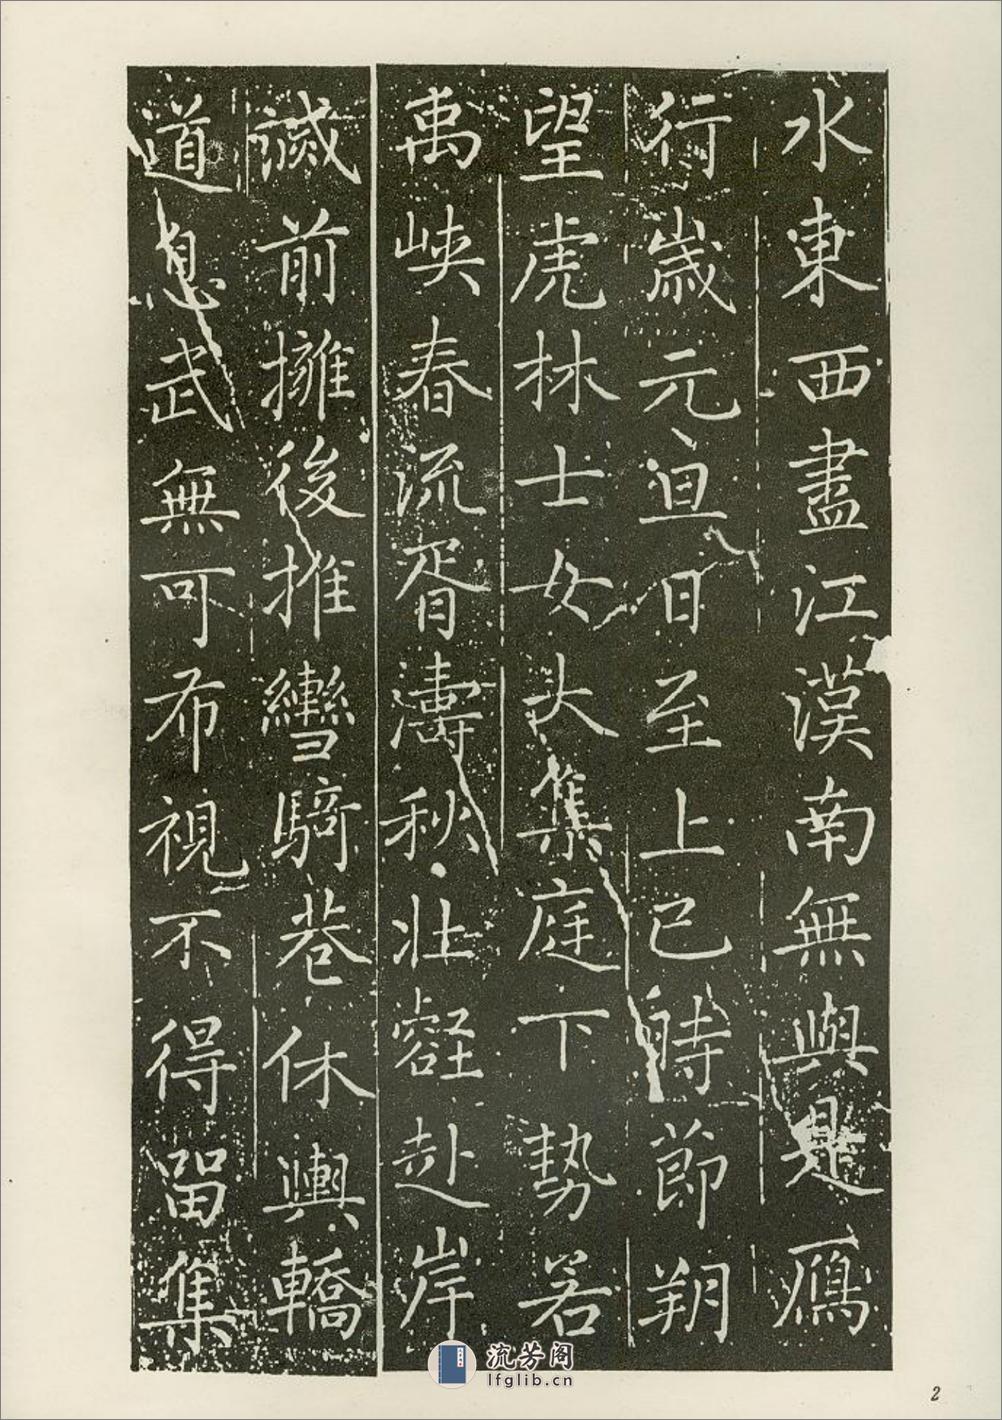 水東西盡江漢南無與是鴈
行歲元亘日至上巳時節朔
望虎林士女大集庭下勢若
禹峽春流胥濤秋壯壑赴岸
滅前擁後推轡騎巷休輿轎
道息武無可布視不得留集
流芳阁
lfglib.cn
2